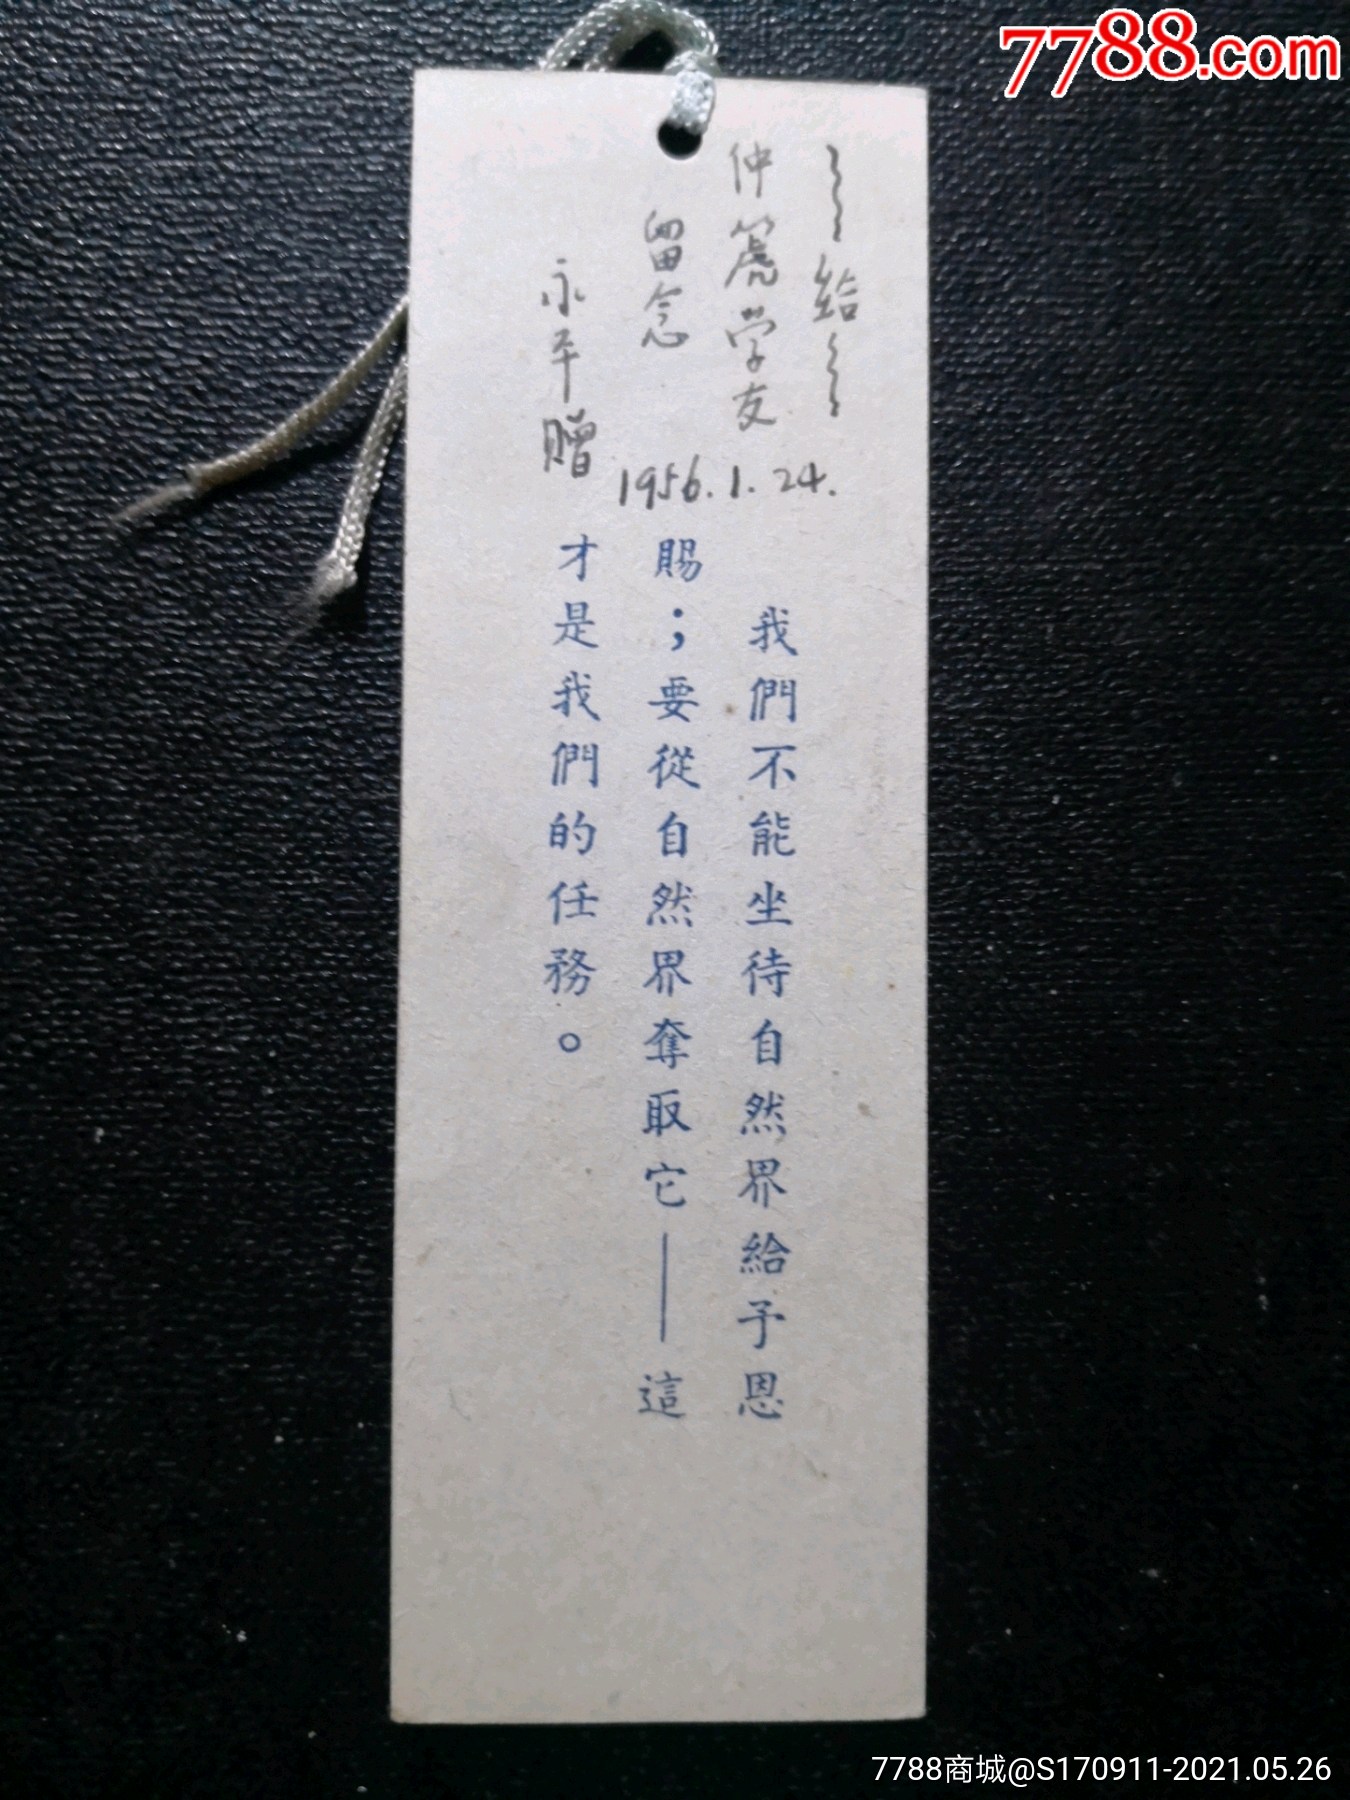 7788.com
给
仲篪学友
留念
永平赠
1956.1.24.
我們不能坐待自然界給予恩
賜；要從自然界奪取它——這
才是我們的任務。
7788商城@S170911-2021.05.26